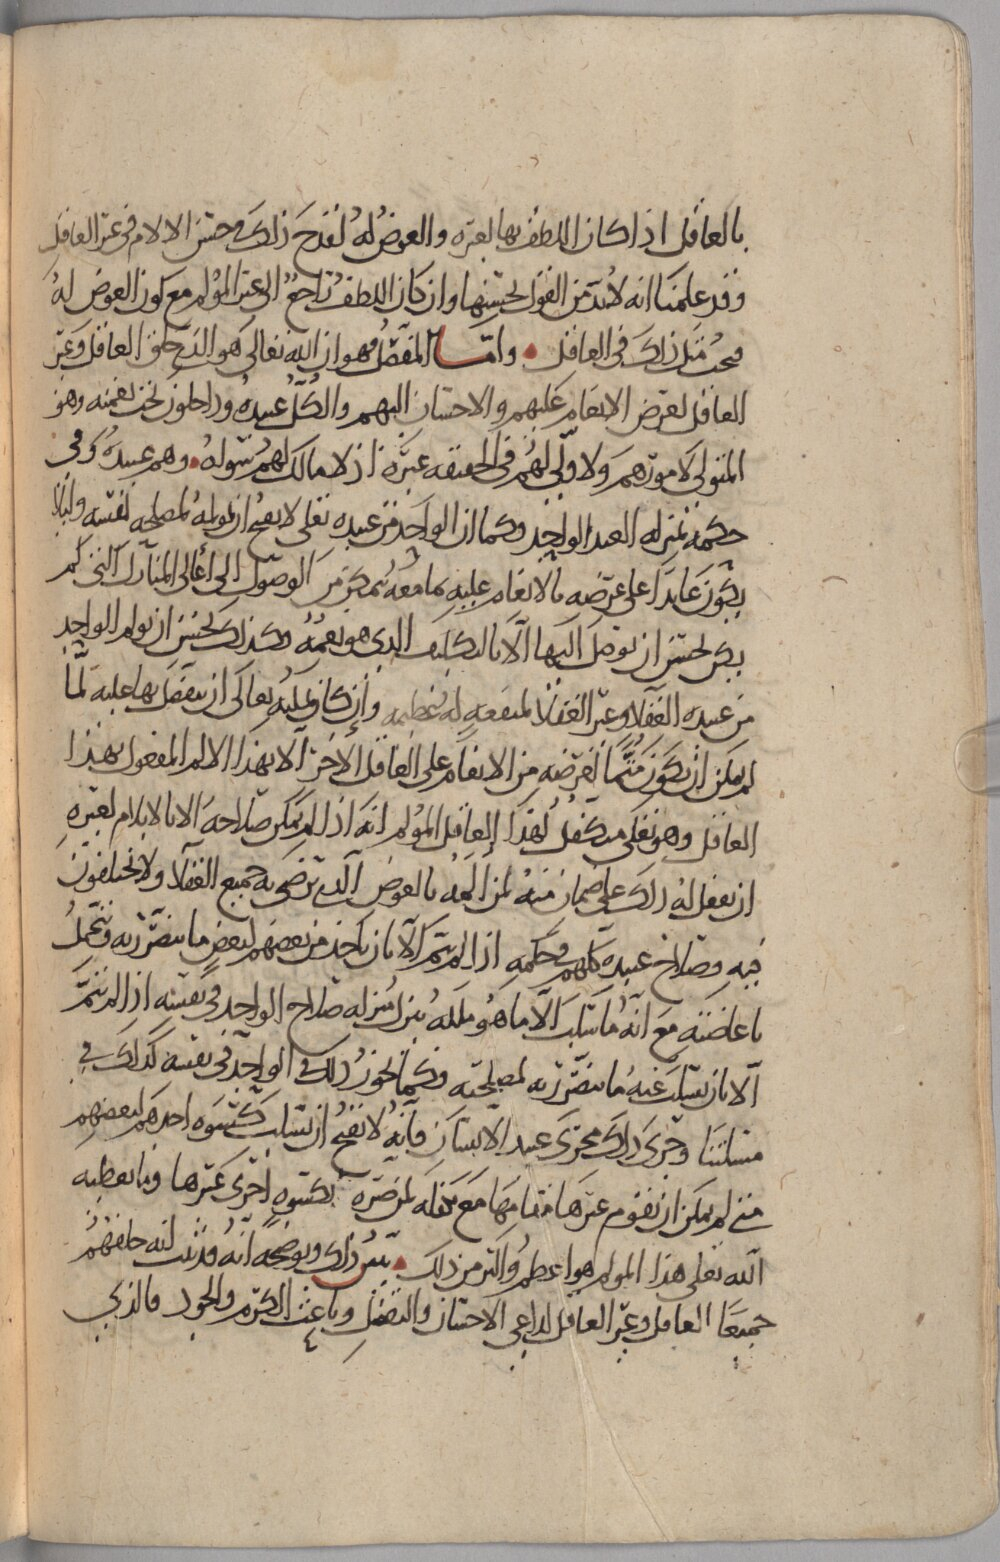 بالعاقل اذا كان اللطف بها لغيره والعوض له لقدح ذلك في حسن الالام في غير العاقل
وقد علمنا انه لا بد من القول بحسنها وان كان اللطف راجع الى غير المؤلم مع كون العوض له
فيجب مثل ذلك في العاقل • واما المفصل فهو ان الله تعالى هو الذي خلق العاقل وغير
العاقل لغرض الانعام عليهم والاحسان اليهم والكل عبيده وداخلون تحت نعمته وهو
المتولي لامورهم ولا ولي لهم في الحقيقة غيره اذ لا مالك لهم سواه • وهم عبيده وفي
حكمه بمنزلة العبد الواحد وكما ان الواحد من عبيده تعالى لا يقبح ان يؤلمه لمصلحة نفسه ولئلا
يكون عايدا على غرضه بالانعام عليه بما معه يمكن من الوصول الى اعالي المنازل التي لم
يكن يحسن ان توصل اليها الا بالتكليف الذي هو نعمة وكذلك يحسن ان يؤلم الواحد
من عبيده العقلا وغير العقلا لمنفعة له عظيمة وان كان يمكنه تعالى ان يتفضل بها عليه لما
لم يمكن ان يكون متمما لغرضه من الانعام على العاقل الاخر الا بهذا الالم المفعول بهذا
العاقل وهو تعالى متكفل لهذا العاقل المؤلم انه اذا لم يمكن صلاحه الا بالايلام لغيره
ان يفعل له ذلك على ضمان منه لمن المه بالعوض الذي يرضى به جميع العقلا ولا يختلفون
فيه وصلاح عبيده كلهم في حكمه اذا لم يتم الا بان ياخذ من بعضهم لبعض ما يتضرر به ويتحمل
باعاضته مع انه ما سلب الا ما هو ملكه ينزل منزلة صلاح الواحد في نفسه اذا لم يتم
الا بان يسلب عنه ما يتضرر به لمصلحته وكما يجوز ذلك في الواحد في نفسه كذلك في
مسلتنا وجرى ذلك مجرى عبيد الانسان فانه لا يقبح ان يسلب كسوه احدهم لبعضهم
متى لم يمكن ان يقوم غيرها مقامها مع تكفله لمن ضره بكسوه اخرى غيرها وما يعطيه
الله تعالى هذا المولم هو اعظم واكثر من ذلك • يبين ذلك ويوضحه انه قد ثبت انه خلقهم
جميعا العاقل وغير العاقل لداعي الاحسان والتفضل وباعث الكرم والجود فالذي